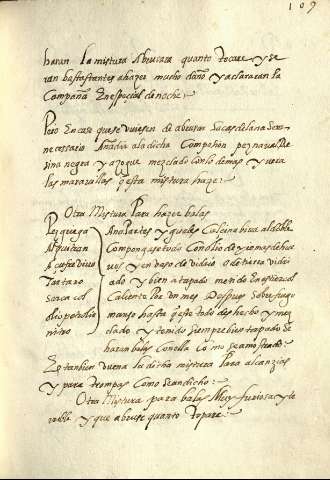 109
haran la mistura Abrasara quanto tocare y se
ran bastastantes a hazer mucho daño y aclararan la
Campaña En especial de noche
Pero En caso que se uuiesen de abrasar sacas de lana sera
nessario Añadir a la dicha Compo pez naual Re
sina negra y azogue mezclado con lo demas y vera
las marauillas q esta mistura haze
Otra Mistura Para hazer balas
Pez griega
Alquitran
Açufre viuo
Tartaro
Sarcacol
oleo petrolio
nitro
Ana Partes yguales Calcina biua al doble
Compongase todo Con olio de yemas de hue
uos y en vaso de vidrio O de tierra vidri
ado y bien atapado metido En estiercol
Caliente Por Un mes Despues sobre fuego
manso hasta q este todo deshecho y mez
clado y tenido siempre bien tapado Se
haran balas Con ella Como se a mostrado
Es tanbien buena la dicha mistura Para alcanzias
y para trompas Como Se a dicho
Otra Mistura para balas Muy furiosa y te
rrible y que abrase quanto topare